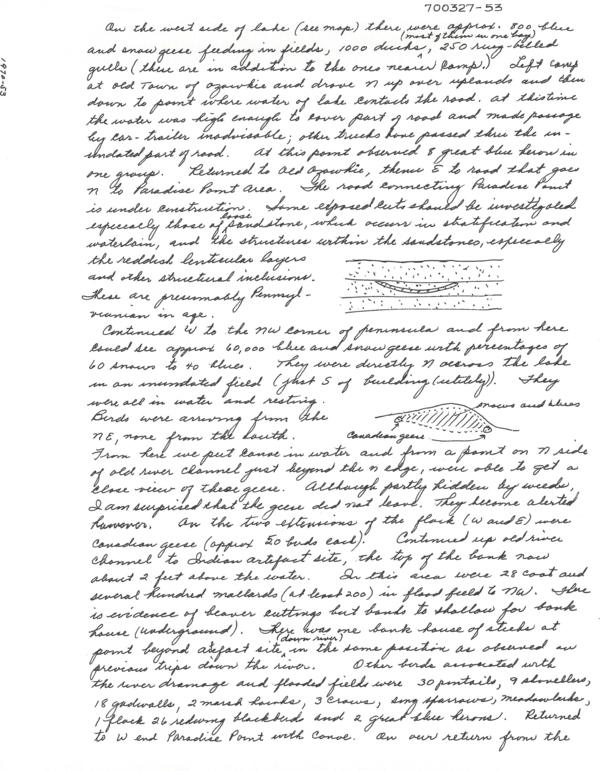 700327-53
1970-53
On the west side of lake (see map) there were approx. 800 blue
(most of them in one bay)
and snow geese feeding in fields, 1000 ducks, 250 ring-billed
gulls (these are in addition to the ones nearer camp.) Left camp
at old Town of Ozawkie and drove N up over uplands and then
down to point where water of lake contacts the road. At this time
the water was high enough to cover part of road and made passage
by car-trailer inadvisable; other trucks have passed thru the in-
undated part of road. At this point observed 8 great blue heron in
one group. Returned to old Ozawkie, thence E to road that goes
N to Paradise Point area. The road connecting Paradise Point
is under construction. Some exposed cuts should be investigated
especially those of loose sandstone, which occurs in stratification and
waterlain, and the structures within the sandstones, especially
the reddish lenticular layers
and other structural inclusions.
These are presumably Pennsyl-
vanian in age.
Continued W to the NW corner of peninsula and from here
could see approx 60,000 blue and snow geese with percentages of
60 snows to 40 blues. They were directly N across the lake
in an inundated field (just S of building (utility)). They
were all in water and resting.
snows and blues
Birds were arriving from the
NE, none from the south.
Canadian geese
From here we put canoe in water and from a point on N side
of old river channel just beyond the N edge, were able to get a
close view of these geese. Although partly hidden by weeds,
I am surprised that the geese did not leave. They become alerted
however. On the two extensions of the flock (W and E) were
Canadian geese (approx 50 birds each). Continued up old river
channel to Indian artefact site, the top of the bank now
about 2 feet above the water. In this area were 28 coot and
several hundred mallards (at least 200) in flood field to NW. There
is evidence of beaver cuttings but banks to shallow for bank
house (underground). There was one bank house of sticks at
point beyond artefact site (down river), in the same position as observed on
previous trips down the river. Other birds associated with
the river drainage and flooded fields were 30 pintails, 9 shovellers,
18 gadwalls, 2 marsh hawks, 3 crows, song sparrows, meadowlarks,
1 flock 26 redwing blackbirds and 2 great blue herons. Returned
to W end Paradise Point with canoe. On our return from the